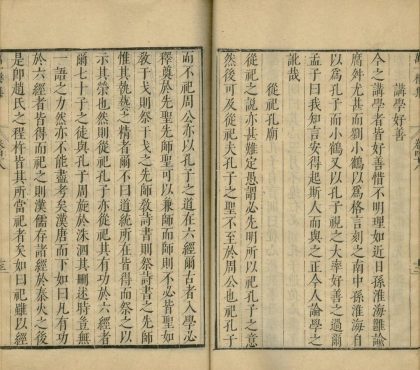 講學好善
今之講學者皆好善惜不明理如近日孫淮海雖論
腐舛尤甚而劉小鶴以為格言刻之南中孫淮海自
以為孔子而小鶴又以孔子視之大率好善之過爾
孟子曰我知言安得起斯人而與之正今人論學之
訛哉
從祀孔廟
從祀之說亦甚難定愚謂必先明所以祀孔子之意
然後可及從祀夫孔子之聖不至於周公也祀孔子
而不祀周公亦以孔子之道在六經爾古者入學必
釋奠於先聖先師聖可以兼師而師則不必皆聖如
敎于戈則祭干戈之先師敎詩書則祭詩書之先師
惟其執藝之精者爾不曰道統所在皆得而祭之以
示其榮也然則從祀孔子亦從祀其有功於六經者
爾七十子之徒與孔子周旋於洙泗其刪述時豈無
一語之力然亦不能盡考矣漢唐而下如曰凡有功
於六經者皆得而祀之則漢儒存諸經於秦火之後
是卽趙氏之程杵皆其所當祀者矣如曰祀雖以經